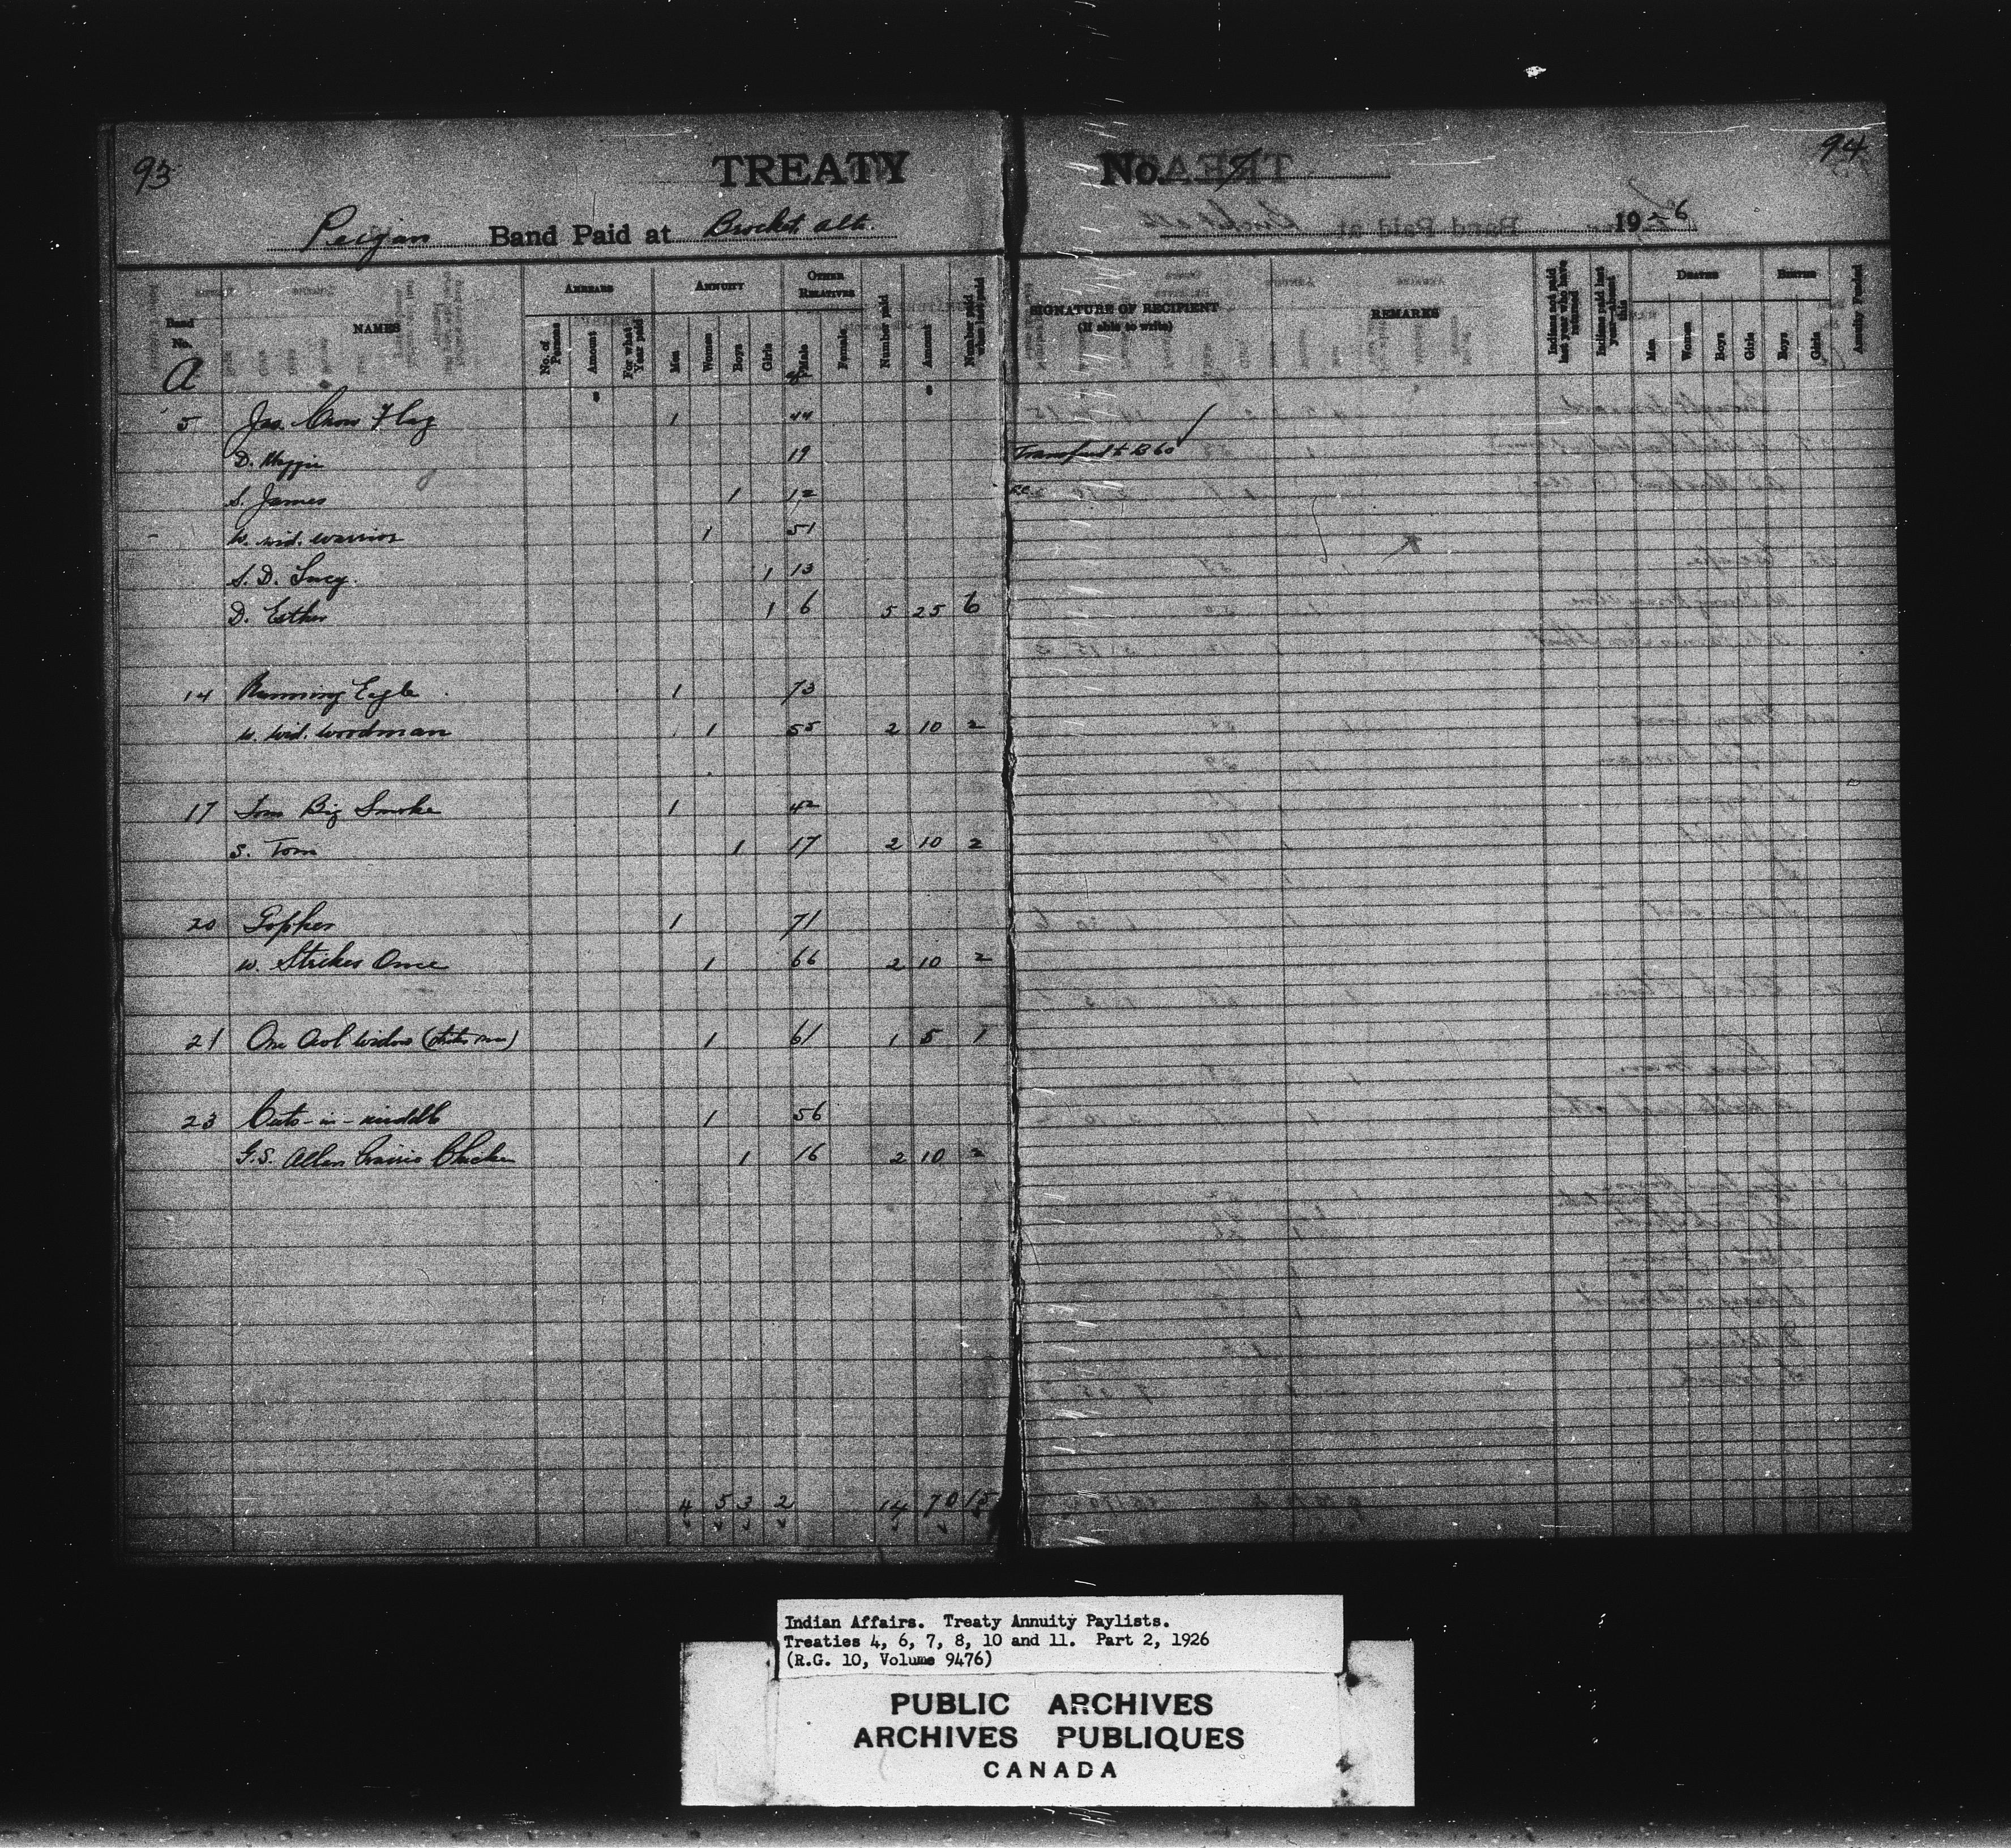 93
94
TREATY No. 7
Peigan Band Paid at Brocket Alta. 1926
Band No.
NAMES
ARREARS
No. of Persons
Amount
For what Year paid
ANNUITY
Men
Women
Boys
Girls
OTHER RELATIVES
Male
Female
Number paid
Amount
Number paid when last paid
SIGNATURE OF RECIPIENT
(If able to write)
REMARKS
Indians not paid last year who have returned
Indians paid last year—absent this
DEATHS
Men
Women
Boys
Girls
BIRTHS
Boys
Girls
Annuity Funded
A
$ $
5 Jas. Crow Flag 1 44
D. Maggie 19 Transferred to B 60
S. James 1 12
W. wid. warrior 1 51
S. D. Lucy. 1 13
D. Esther 1 6 5 25 6
14 Running Eagle 1 73
W. wid. woodman 1 55 2 10 2
17 Tom Big Smoke 1 42
S. Tom 1 17 2 10 2
20 Gopher 1 71
W. Strikes Once 1 66 2 10 2
21 One Owl Widow 1 61 1 5 1
23 Cuts-in-middle 1 56
G.S. Allan Prairie Chicken 1 16 2 10 2
4 5 3 2 14 70 15
Indian Affairs. Treaty Annuity Paylists.
Treaties 4, 6, 7, 8, 10 and 11. Part 2, 1926
(R.G. 10, Volume 9476)
PUBLIC ARCHIVES
ARCHIVES PUBLIQUES
CANADA